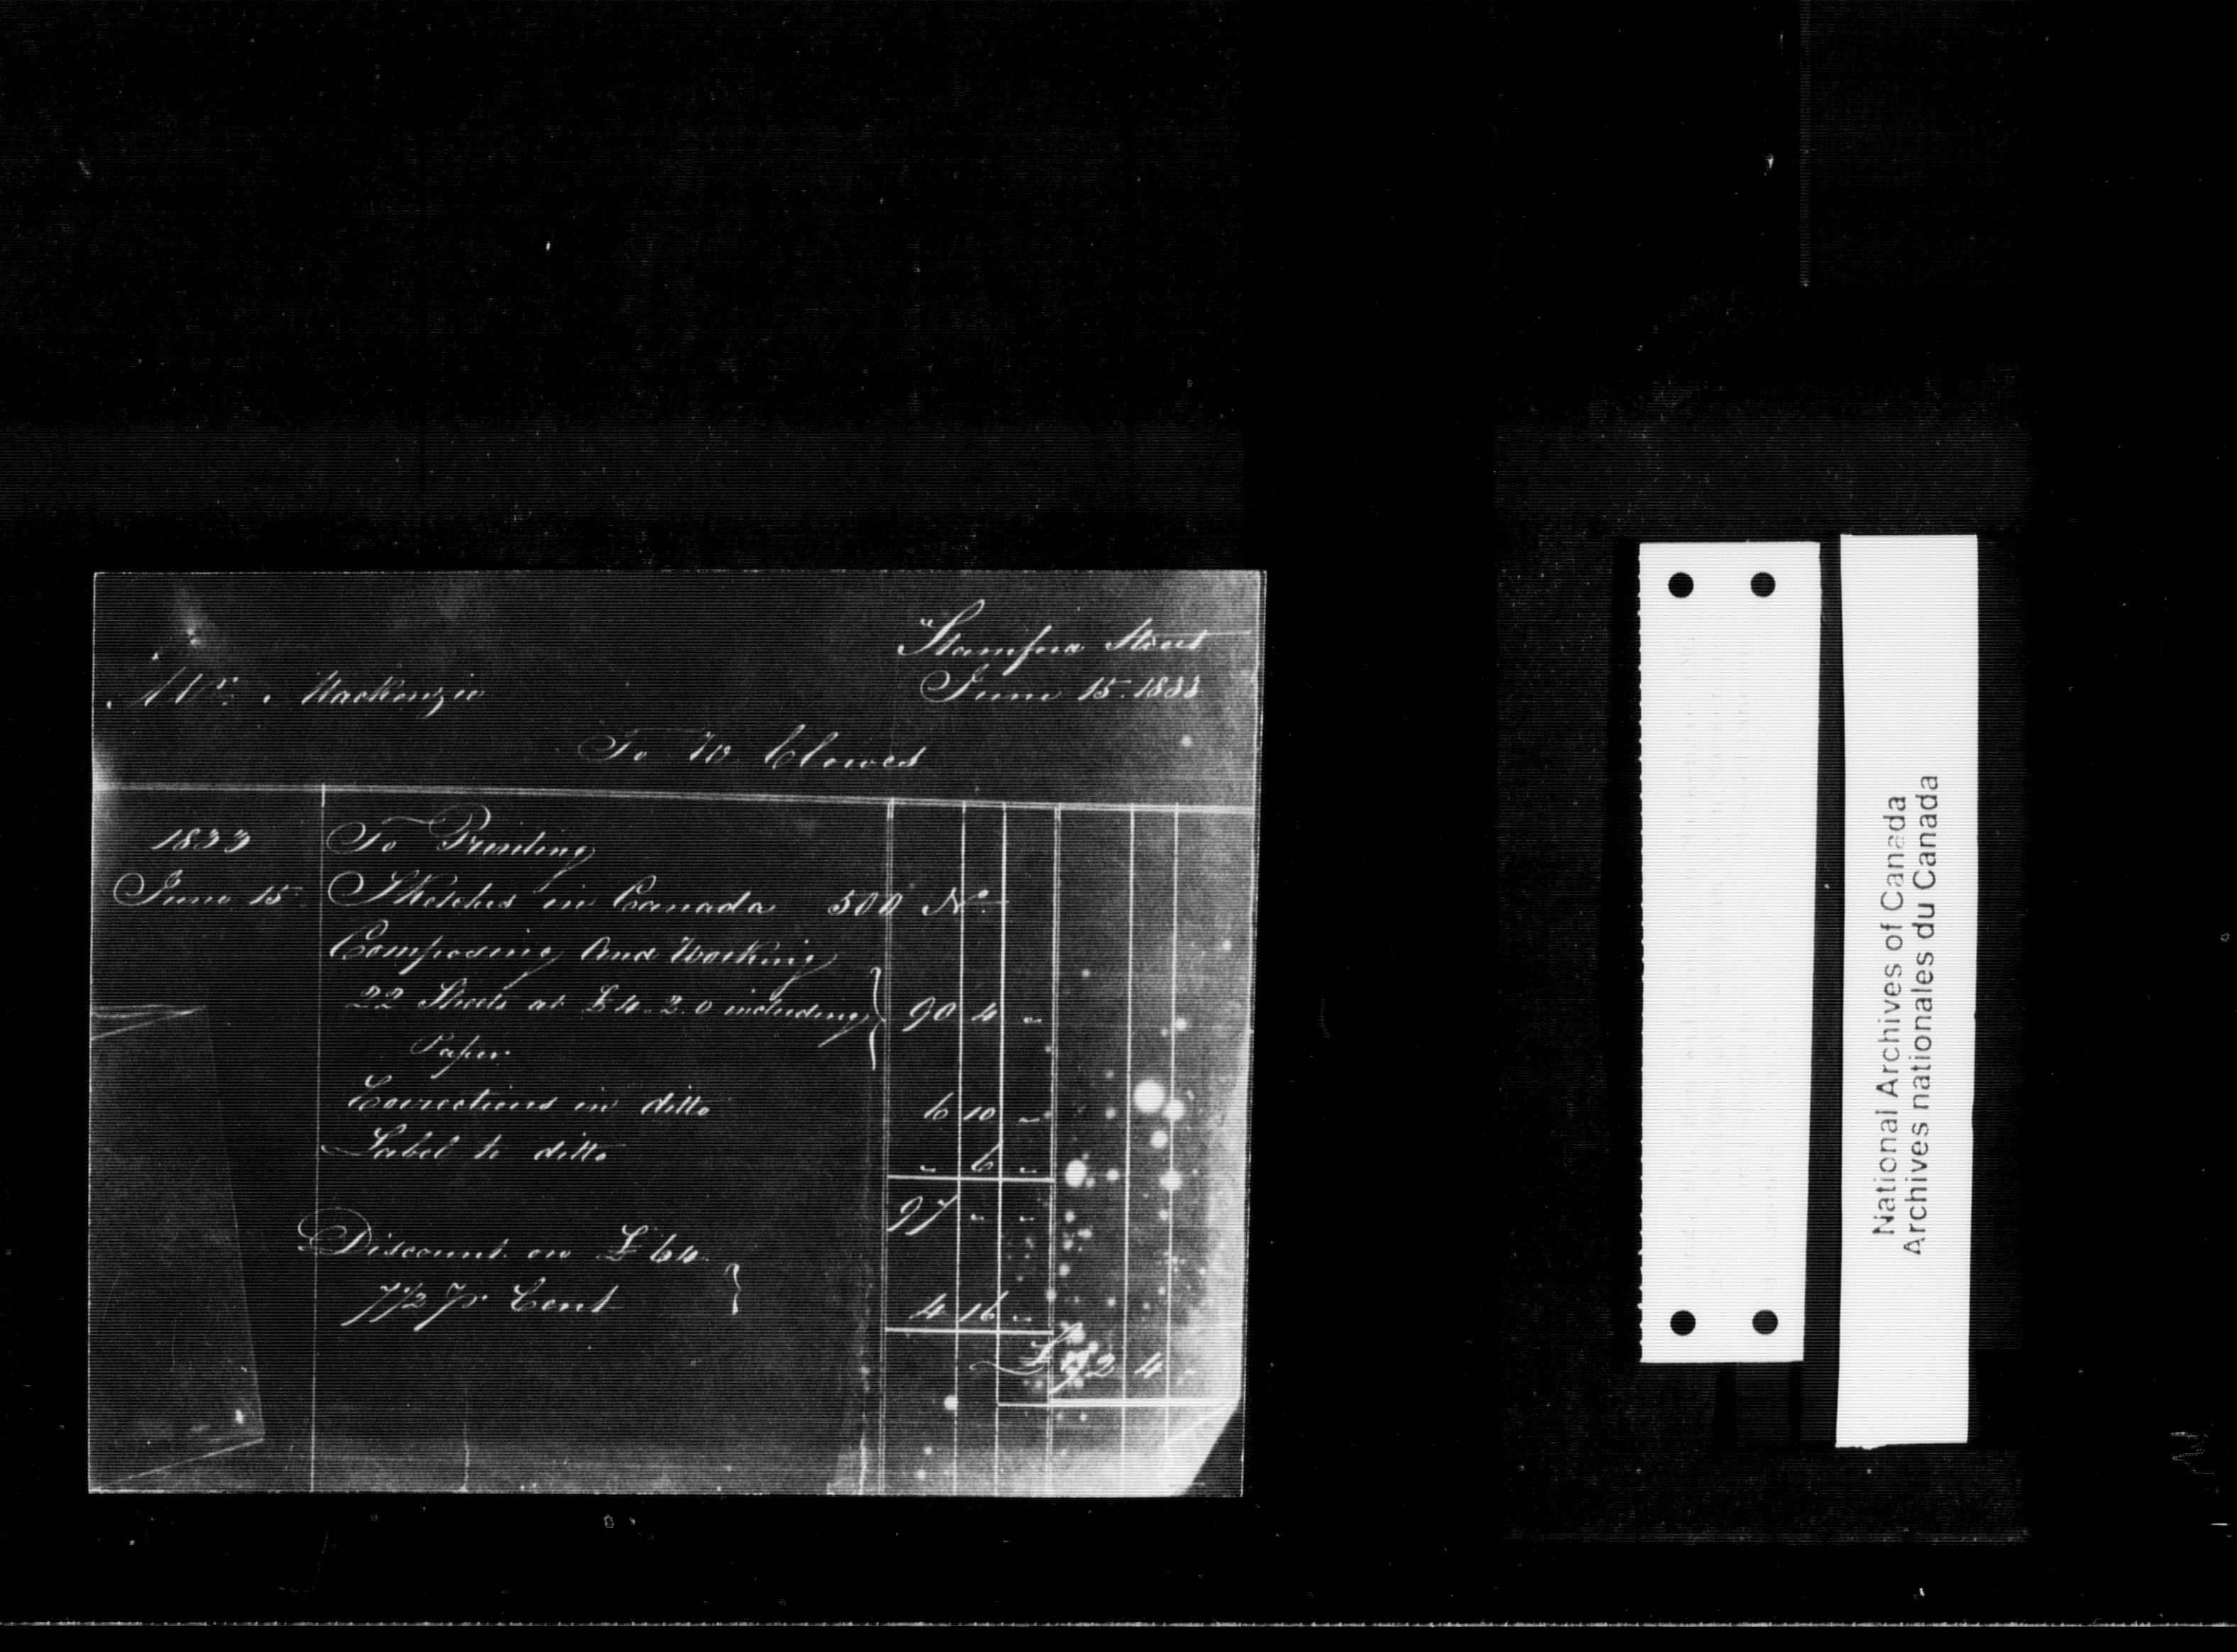 Stamford Street
June 15. 1833
Mr. Mackenzie
To W Clowes
1833 To Printing
June 15. Sketches in Canada 500 No.
Composing and Working
22 Sheets at £4.2.0 including } 90 4 "
Paper
Corrections in ditto 6 10 "
Label to ditto " 6 "
97 " "
Discount on £64
7 1/2 pr Cent } 4 16 "
£92 4 "
National Archives of Canada
Archives nationales du Canada